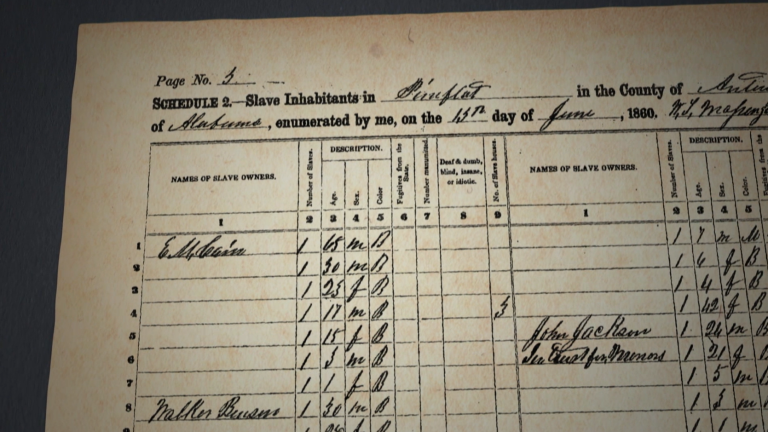 Page No. 3
SCHEDULE 2.—Slave Inhabitants in in the County of
of Alabama, enumerated by me, on the 15th day of June, 1860.
NAMES OF SLAVE OWNERS. Number of Slaves. DESCRIPTION. Age. Sex. Color Fugitives from the State. Number manumitted. Deaf & dumb, blind, insane, or idiotic. No. of Slave houses. NAMES OF SLAVE OWNERS. Number of Slaves. DESCRIPTION. Age. Sex. Color. Fugitives from the
1 2 3 4 5 6 7 8 9 1 2 3 4 5
1 1 65 m B 1 7 m M
2 1 30 m B 1 6 f B
3 1 23 f B 1 4 f B
4 1 17 m B 3 1 42 f B
5 1 15 f B John Jackson 1 24 m B
6 1 3 m B In Trust for Minors 1 21 f B
7 1 1 f B 1 5 m
8 Walker Benson 1 30 m B 1 3 m
1 1 m